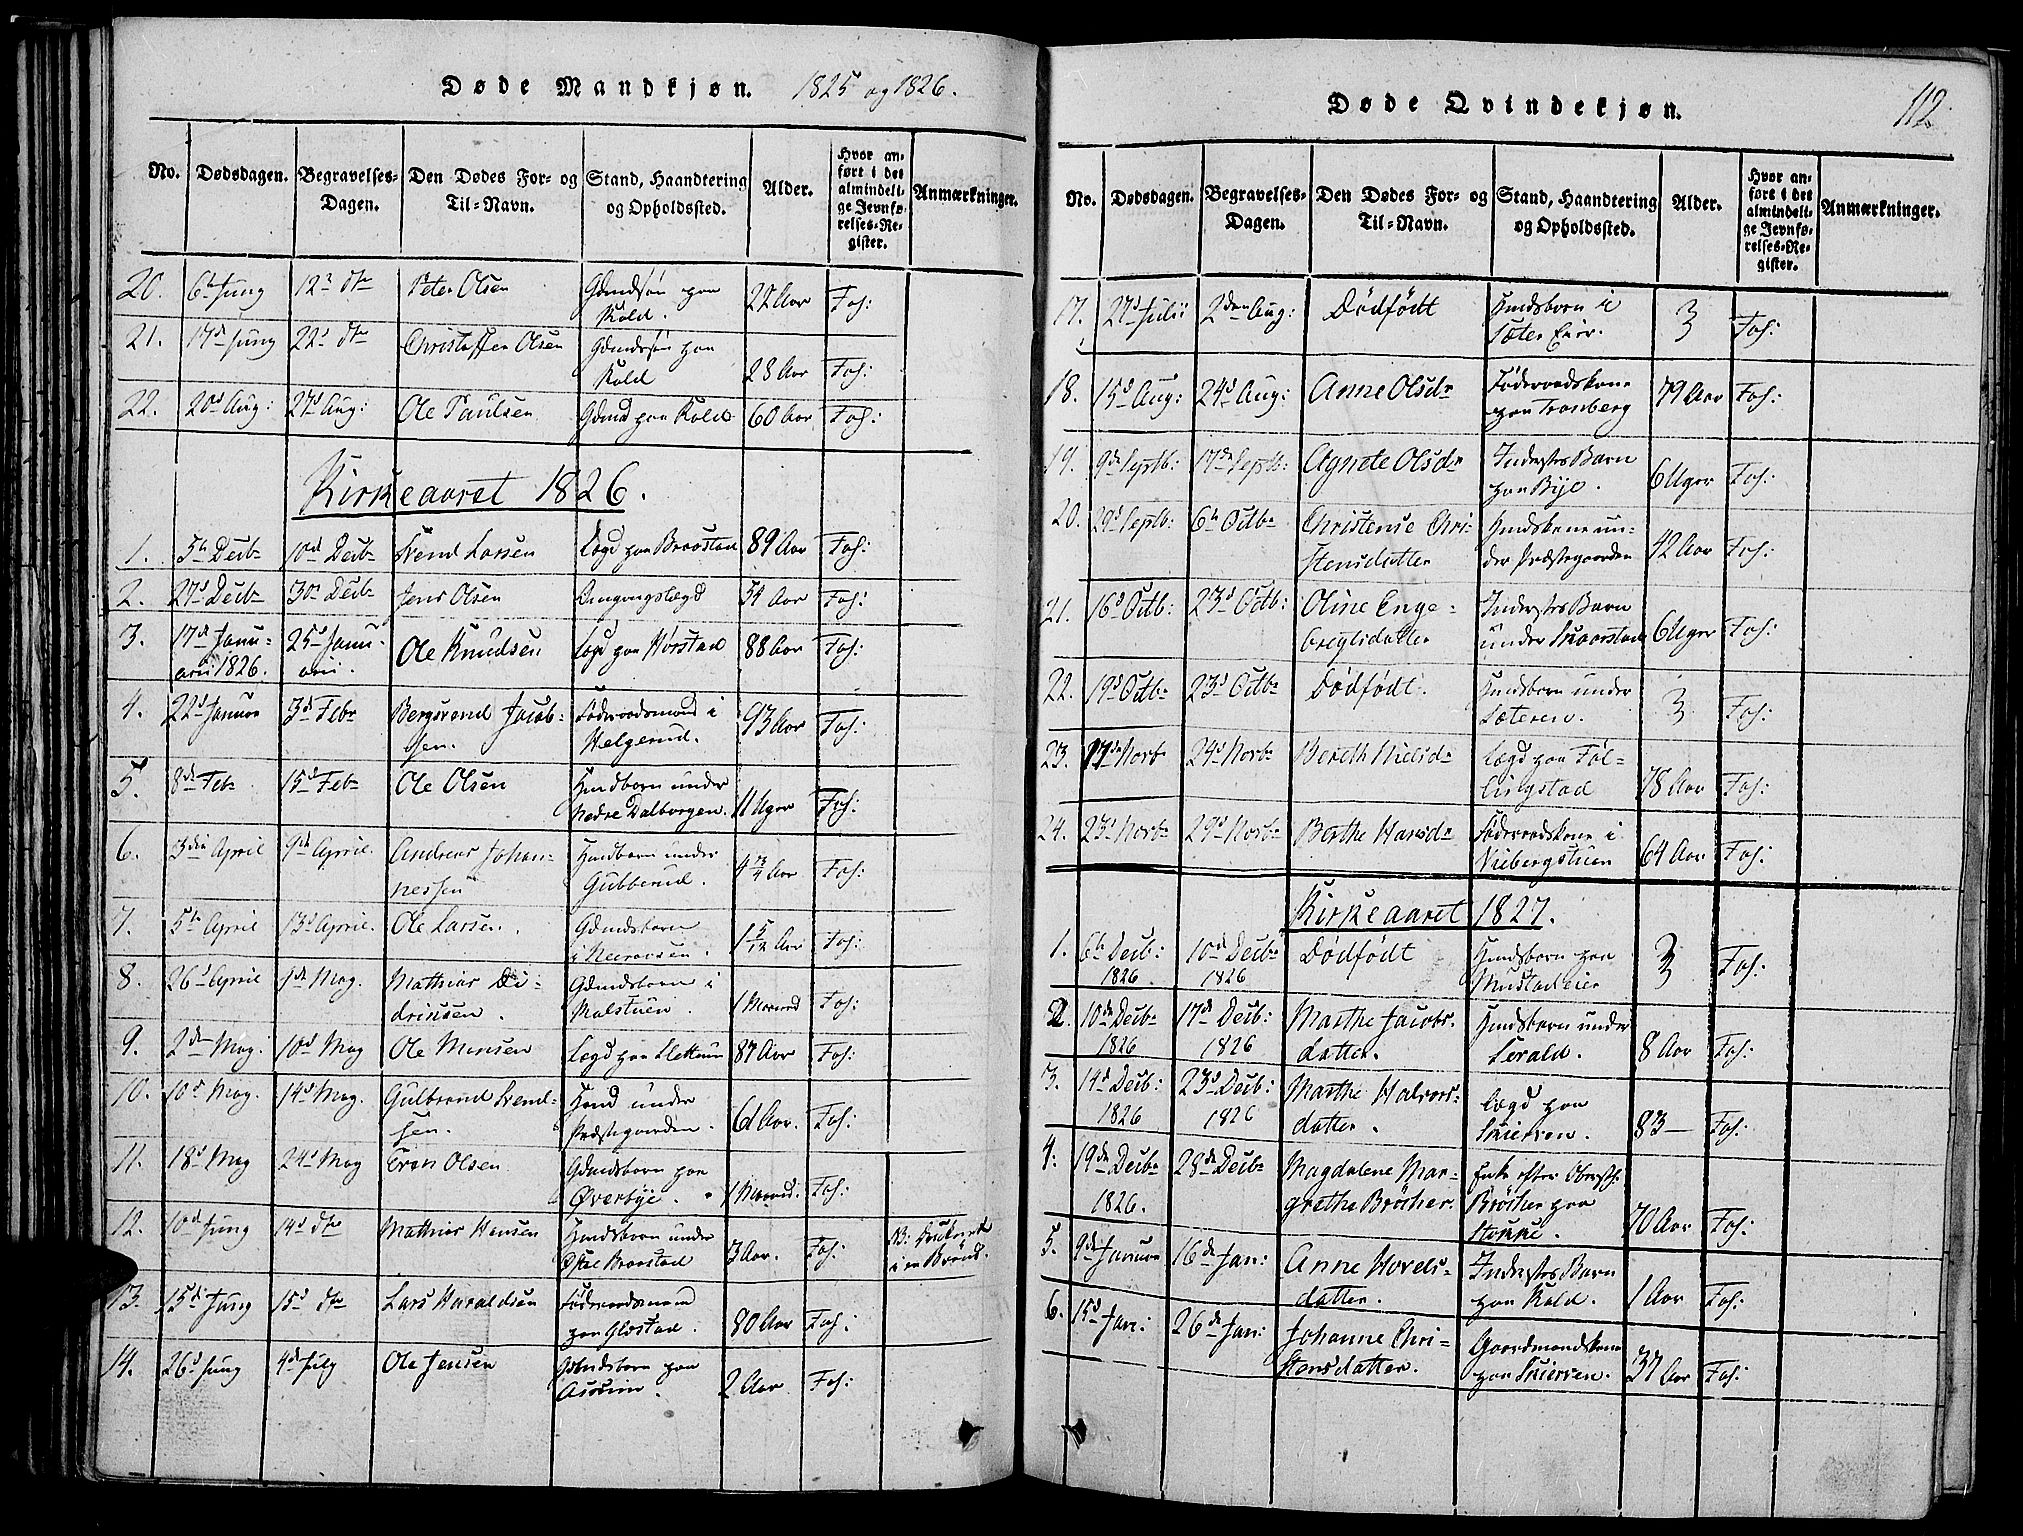 Døde Mandkjøn. 1825 og 1826.
No. Dødsdagen. Begravelses-Dagen. Den Dødes For- og Til-Navn. Stand, Haandtering og Opholdssted. Alder. Hvor anført i det almindelige Jevnførelses-Register. Anmærkninger.
20. 6te Juny 12te dto Peter Olsen Gdmdsøn paa Kold. 22 Aar Foh:
21. 17de Juny 22d dto Christoffer Olsen Gdmdsøn paa Kold 28 Aar Foh:
22. 20d Aug: 27d Aug: Ole Paulsen Gdmd paa Kold 60 Aar Foh:
Kirkeaaret 1826.
1. 5te Decb 10de Decb Svend Larsen Lægd paa Braastad 89 Aar Foh:
2. 27d Decb 30te Decb Jens Olsen Omgangslægd 54 Aar Foh:
3. 17de Januarii 1826. 25d Januarii. Ole Knudsen Lægd paa Hørstad 88 Aar Foh:
4. 22d Januar 3d Febr Bergsvend Jacobsen. Føderaadsmand i Helgerud. 93 Aar Foh:
5. 8de Feb 15d Feb Ole Olsen Husmdbarn under Nedre Dalborgen. 11 Uger Foh:
6. 3die April 9de April. Andreas Johannessen Husmdbarn under Gubberud. 4 3/4 Aar Foh:
7. 5te April 13d April. Ole Larsen. Gdmdsbarn i 1 5/12 Aar Foh:
8. 26d April 1ste May. Mathias Didrinsen. Gdmdsbarn i Malstuen. 1 Maaned Foh:
9. 2den May. 10d May Ole Monsen Lægd paa Slettum 87 Aar Foh:
10. 10d May. 14d May. Gulbrand Svendsen. Husmd under Præstegaarden. 61 Aar. Foh:
11. 18d May 24d May Even Olsen Gdmdsbarn paa Øverbye. 1 Maaned. Foh:
12. 10d Juny 14d dto Mathias Hansen Husmdsbarn under Østre Braastad 3 Aar. Foh: NB: Druknede i en Brønd.
13. 15d Juny 15d dto Lars Haraldsen Føderaadsmand paa Glæstad. 80 Aar Foh:
14. 26d Juny 4de July Ole Jensen Gdmdsbarn paa 2 Aar. Foh:
Døde Qvindekjøn. 112
No. Dødsdagen. Begravelses-Dagen. Den Dødes For- og Til-Navn. Stand, Haandtering og Opholdssted. Alder. Hvor anført i det almindelige Jevnførelses-Register. Anmærkninger.
17. 27d Julii 2den Aug: Dødfødt Husmdsbarn i Sæter Eier. 3 Foh:
18. 15d Aug: 24d Aug: Anne Olsdr Føderaadskone paa Tranberg 79 Aar Foh:
19. 9de Septb: 17de Septb: Agnete Olsdr Inderstes Barn paa Bye. 6 Uger Foh:
20. 29d Septb: 6te Octb Christense Christensdatter Husmdskone under Præstegaarden 42 Aar Foh:
21. 16d Octb: 23d Octb: Oline Engebregtsdatter Inderstes Barn under Skaarstad 6 Uger Foh:
22. 19d Octb 23d Octb Dødfødt. Husmdsbarn under Sæteren. 3 Foh:
23. 17de Novb 24d Novb Bereth Nielsd Lægd paa 78 Aar Foh:
24. 23d Novb 29d Novb Berthe Hansdr Føderaadskone i Viebergstuen 64 Aar Foh:
Kirkeaaret 1827.
1. 6te Decb: 1826. 10d Decb 1826 Dødfødt Husmdsbarn paa Mustad eier 3 Foh:
2. 10de Decb 1826 17de Decb: 1826 Marthe Jacobsdatter. Husmdsbarn under 8 Aar Foh:
3. 14d Decb: 1826 23d Decb: 1826 Marthe Halvorsdatter. Lægd paa Skiersven. 83 — Foh:
4. 19de Decb 1826. 28de Decb Magdalene Margrethe Brøcher. Enke efter Oberstl: Brøcher paa Stokke. 70 Aar Foh:
5. 9de Januar 16de Jan: Anne Hovelsdatter. Inderstes Barn paa Kold. 1 Aar Foh:
6. 15d Jan: 26de Jan: Johanne Christensdatter. Gaardmandskone paa Skiersven. 37 Aar Foh: